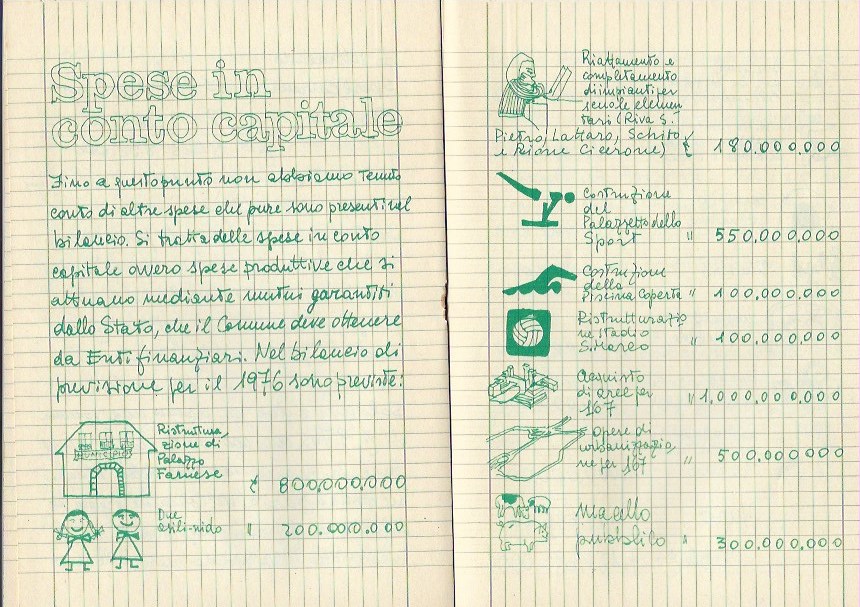 Spese in
conto capitale
Fino a questo punto non abbiamo tenuto
conto di altre spese che pure sono presenti nel
bilancio. Si tratta delle spese in conto
capitale ovvero spese produttive che si
attuano mediante mutui garantiti
dallo Stato, che il Comune deve ottenere
da Enti finanziari. Nel bilancio di
previsione per il 1976 sono previste:
MUNICIPIO
Ristruttura
zione di
Palazzo
Farnese £ 800.000.000
Due
asili-nido " 200.000.000
Riattamento e
completamento
di impianti per
scuole elemen
tari (Riva S.
Pietro, Lattaro, Schito
e Rione Cicerone) £ 180.000.000
Costruzione
del
Palazzetto dello
Sport " 550.000.000
Costruzione
della
Piscina Coperta " 100.000.000
Ristrutturazio
ne stadio
S. Marco " 100.000.000
Acquisto
di aree per
167 " 1.000.000.000
Opere di
urbanizzazio
ne per 167 " 500.000.000
Macello
pubblico " 300.000.000